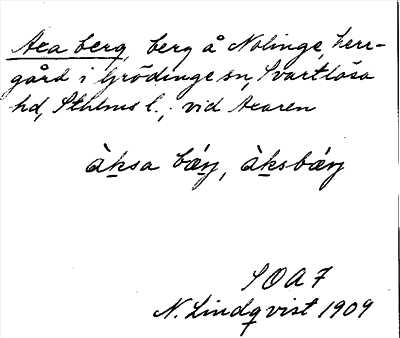 Axa berg, berg å Nolinge, herr-
gård i Grödinge sn, Svartlösa
hd, Sthlms l., vid Axaren
àksa bærj, àksbærj
SOA 7
N. Lindqvist 1909